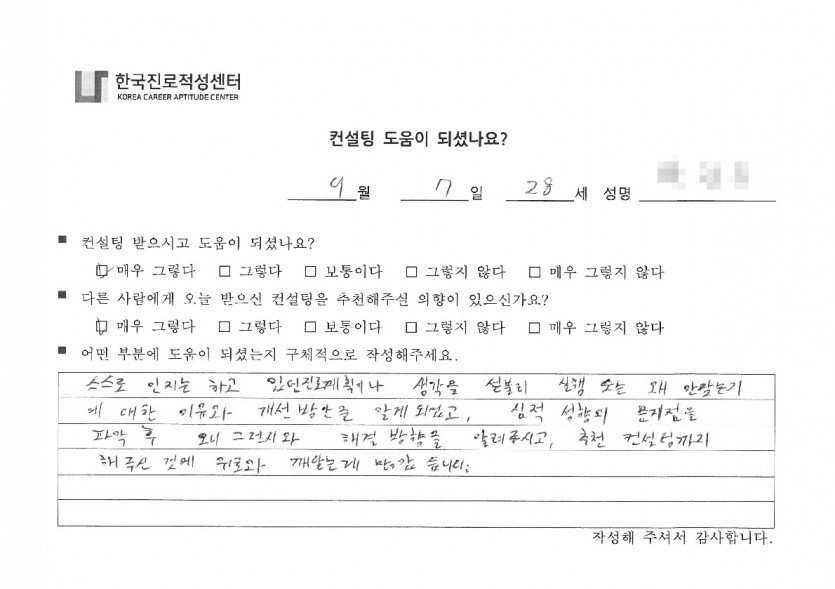 한국진로적성센터
KOREA CAREER APTITUDE CENTER
컨설팅 도움이 되셨나요?
9 월 7 일 28 세 성명
■ 컨설팅 받으시고 도움이 되셨나요?
☑ 매우 그렇다 □ 그렇다 □ 보통이다 □ 그렇지 않다 □ 매우 그렇지 않다
■ 다른 사람에게 오늘 받으신 컨설팅을 추천해주실 의향이 있으신가요?
☑ 매우 그렇다 □ 그렇다 □ 보통이다 □ 그렇지 않다 □ 매우 그렇지 않다
■ 어떤 부분에 도움이 되셨는지 구체적으로 작성해주세요.
스스로 인지는 하고 있던진로계획이나 생각을 섣불리 실행 또는 왜 안맞는지
에 대한 이유와 개선방안을 알게되었고, 심적 성향의 문제점을
파악 후 왜 그런지와 해결 방향을 알려주시고, 추천 컨설팅까지
해주신 것에 위로와
작성해 주셔서 감사합니다.